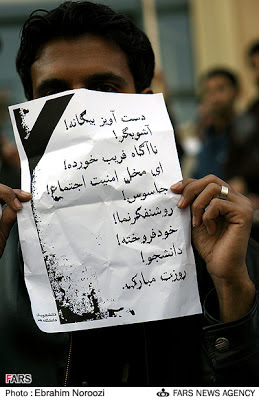 دست آویز بیگانه!
آشوبگر!
ناآگاه فریب خورده!
ای مخل امنیت اجتماع!
جاسوس!
روشنفکرنما!
خودفروخته!
دانشجو!
روزت مبارک.
FARS
Photo : Ebrahim Noroozi
FARS NEWS AGENCY